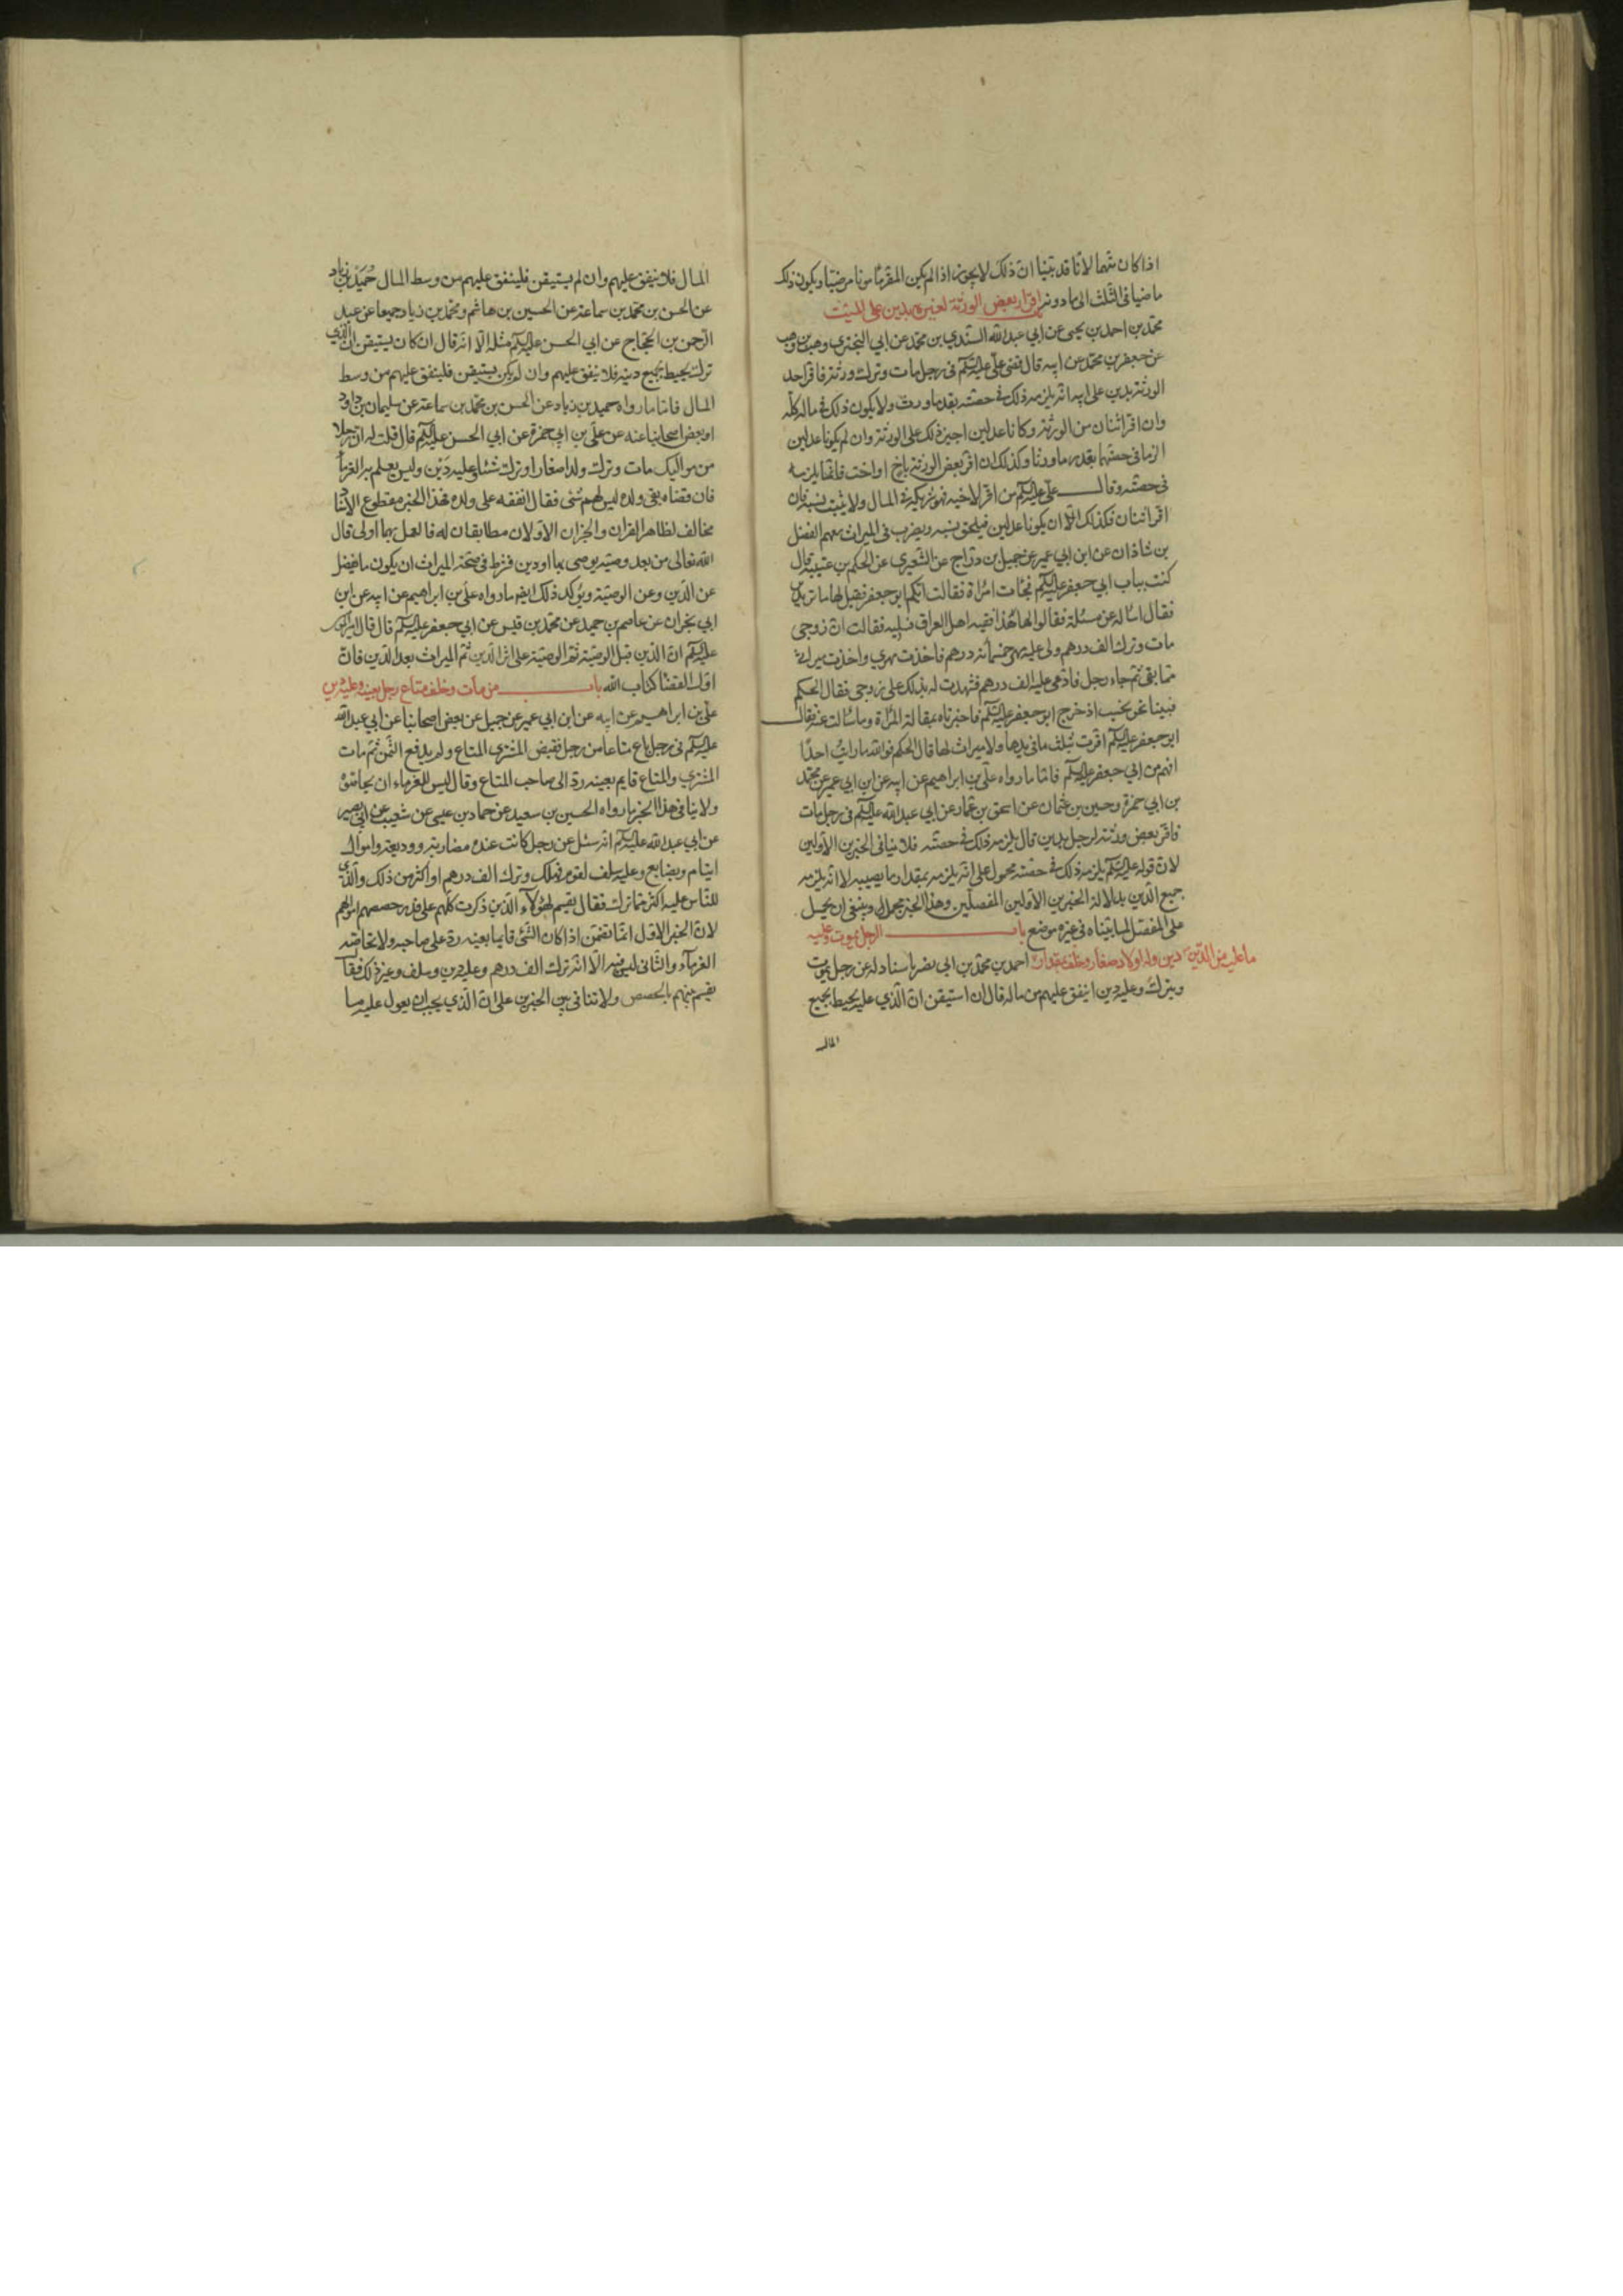 اذا كان متهما لانا قد بينا ان ذلك لا يجوز اذا لم يكن المقر مامونا مرضيا ويكون ذلك
ماضيا فى الثلث الى ما دونه اقرار بعض الورثة لغيره بدين على الميت
محمد بن احمد بن يحيى عن ابي عبد الله السندي بن محمد عن ابي البختري وهب بن وهب
عن جعفر بن محمد عن ابيه قال قضى علي عليه السلم فى رجل مات وترك ورثته فاقر احد
الورثة بدين على ابيه انه يلزمه ذلك فى حصته بقدر ما ورث ولا يكون ذلك فى ماله كله
وان اقر اثنان من الورثة وكانا عدلين اجيز ذلك على الورثة وان لم يكونا عدلين
الزما فى حصتهما بقدر ما ورثا وكذلك ان اقر بعض الورثة باخ او اخت فانما يلزمه
فى حصته وقال علي عليه السلم من اقر لاخيه فهو شريكه فى المال ولا يثبت نسبه فان
اقر اثنان فكذلك الا ان يكونا عدلين فيلحق بنسبه ويضرب فى الميراث معهم الفضل
بن شاذان عن ابن ابي عمير عن جميل بن دراج عن الشعيري عن الحكم بن عتيبة قال
كنت بباب ابي جعفر عليه السلم فجائت امرأة فقالت ايكم ابو جعفر فقيل لها ما تريدين
فقال اساله عن مسئلة فقالوا لها هذا فقيه اهل العراق فسليه فقالت ان زوجى
مات وترك الف درهم ولى عليه مهر خمسمائة درهم فاخذت مهري واخذت ميراثى
مما بقى ثم جاء رجل فادعى عليه الف درهم فشهدت له بذلك على زوجى فقال الحكم
فبينا نحن نحسب اذ خرج ابو جعفر عليه السلم فاخبرناه بمقالة المرأة وما سالت عنه فقال
ابو جعفر عليه السلم اقرت بثلث مافى يدها ولا ميراث لها قال الحكم فوالله ما رايت احدا
افهم من ابي جعفر عليه السلم فاما ما رواه علي بن ابراهيم عن ابيه عن ابن ابي عمير عن محمد
بن ابي حمزة وحسين بن عثمان عن اسحق بن عمار عن ابي عبد الله عليه السلم فى رجل مات
فاقر بعض ورثته لرجل بدين قال يلزمه ذلك فى حصته فلا ينافى الخبرين الاولين
لان قوله عليه السلم يلزمه ذلك فى حصته محمول على انه يلزمه بمقدار ما يصيبه لا انه يلزمه
جميع الدين بدلالة الخبرين الاولين المفصلين وهذا الخبر مجمل وينبغى ان يحمل
على المفصل لما بيناه فى غيره موضع باب الرجل يموت وعليه
دين وله اولاد صغار وخلف بمقدار ما عليه من الدين احمد بن محمد بن ابي نصر باسناد له عن رجل يموت
ويترك وعليه دين اينفق عليهم من ماله قال ان استيقن ان الذي عليه يحيط بجميع
المال
المال فلا ينفق عليهم وان لم يستيقن فلينفق عليهم من وسط المال حميد بن زياد
عن الحسن بن محمد بن سماعة عن الحسين بن هاشم ومحمد بن زياد جميعا عن عبد
الرحمن بن الحجاج عن ابي الحسن عليه السلم مثله الا انه قال ان كان يستيقن ان الذي
ترك يحيط بجميع دينه فلا ينفق عليهم وان لم يكن يستيقن فلينفق عليهم من وسط
المال فاما ما رواه حميد بن زياد عن الحسن بن محمد بن سماعة عن سليمان بن داود
او بعض اصحابنا عنه عن علي بن ابي حمزة عن ابي الحسن عليه السلم قال قلت له ان رجلا
من مواليك مات وترك ولدا صغارا وترك شيئا وعليه دين وليس يعلم به الغرماء
فان قضاه بقى ولده ليس لهم شئ فقال انفقه على ولده فهذا الخبر مقطوع الاسناد
مخالف لظاهر القران والخبران الاولان مطابقان له فالعمل بهما اولى قال
الله تعالى من بعد وصية يوصى بها او دين فشرط فى صحة الميراث ان يكون ما يفضل
عن الدين وعن الوصية ويؤكد ذلك ايضا ما رواه علي بن ابراهيم عن ابيه عن ابن
ابي نجران عن عاصم بن حميد عن محمد بن قيس عن ابي جعفر عليه السلم قال قال امير المؤمنين
عليه السلم ان الدين قبل الوصية ثم الوصية على اثر الدين ثم الميراث بعد الدين فان
اول القضاء كتاب الله باب من مات وخلف متاع رجل بعينه وعليه دين
علي بن ابراهيم عن ابيه عن ابن ابي عمير عن جميل عن بعض اصحابنا عن ابي عبد الله
عليه السلم فى رجل باع متاعا من رجل فقبض المشتري المتاع ولم يدفع الثمن ثم مات
المشتري والمتاع قايم بعينه رد الى صاحب المتاع وقال ليس للغرماء ان يحاصوه
ولا ينافى هذا الخبر ما رواه الحسين بن سعيد عن حماد بن عيسى عن شعيب عن ابي بصير
عن ابي عبد الله عليه السلم انه سئل عن رجل كانت عنده مضاربة ووديعة واموال
ايتام وبضايع وعليه سلف لقوم فهلك وترك الف درهم او اكثر من ذلك والذي
للناس عليه اكثر مما ترك فقال يقسم لهؤلاء الذين ذكرت كلهم على قدر حصصهم اموالهم
لان الخبر الاول انما تضمن اذا كان الشئ قايما بعينه رد على صاحبه ولا تخاصه
الغرماء والثانى ليس فيه الا انه ترك الف درهم وعليه دين وسلف وغير ذلك فقال
يقسم بينهم بالحصص ولا تنافى بين الخبرين على ان الذي يجب ان يعول عليه ما